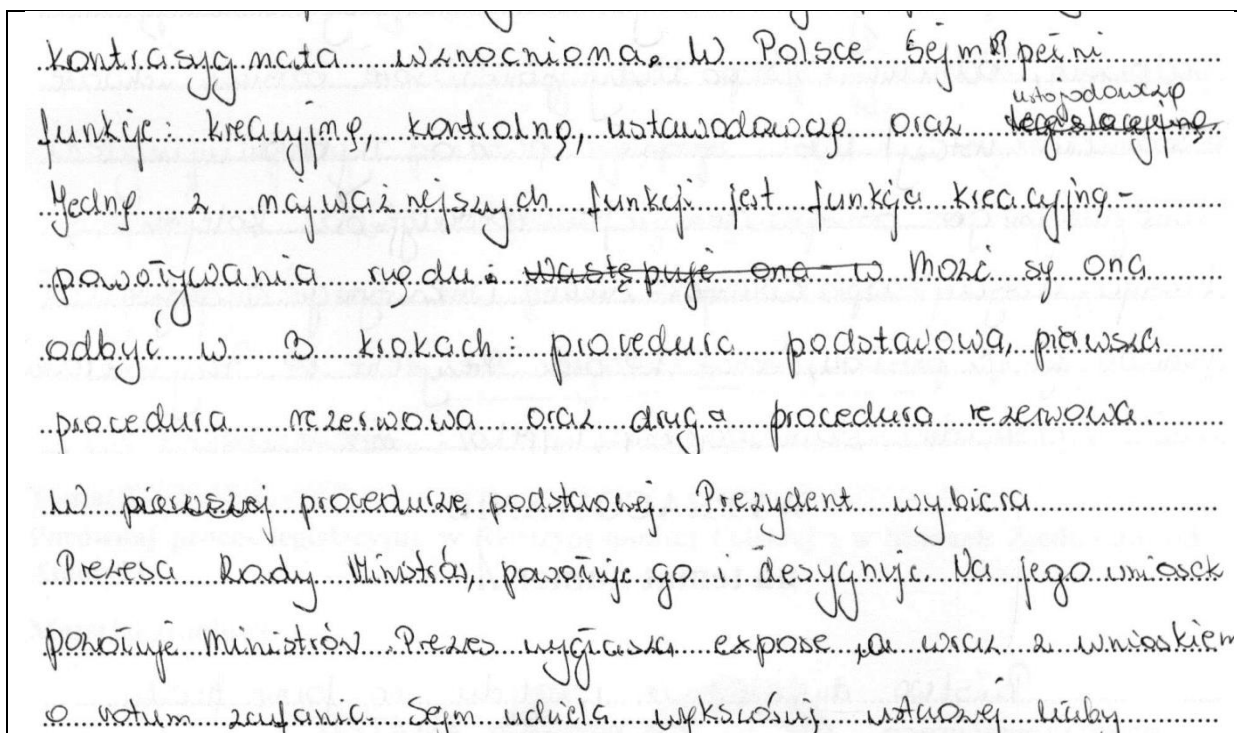 kontrasygnata wzmocniona. W Polsce Sejm pełni
funkcje: kreacyjną, kontrolną, ustawodawczą oraz ustrojodawczą
Jedną z najważniejszych funkcji jest funkcja kreacyjna -
powoływania rządu. Wastępuje ona w Może sy ona
odbyć w 3 krokach: procedura podstawowa, pierwsza
procedura rezerwowa oraz druga procedura rezerwowa.
W pierwszej procedurze podstawowej Prezydent wybiera
Prezesa Rady Ministrów, powołuje go i desygnuje. Na jego wniosek
powołuje Ministrów. Prezes wygłasza expose wraz z wnioskiem
o votum zaufania. Sejm udziela większością ustawowej liczby